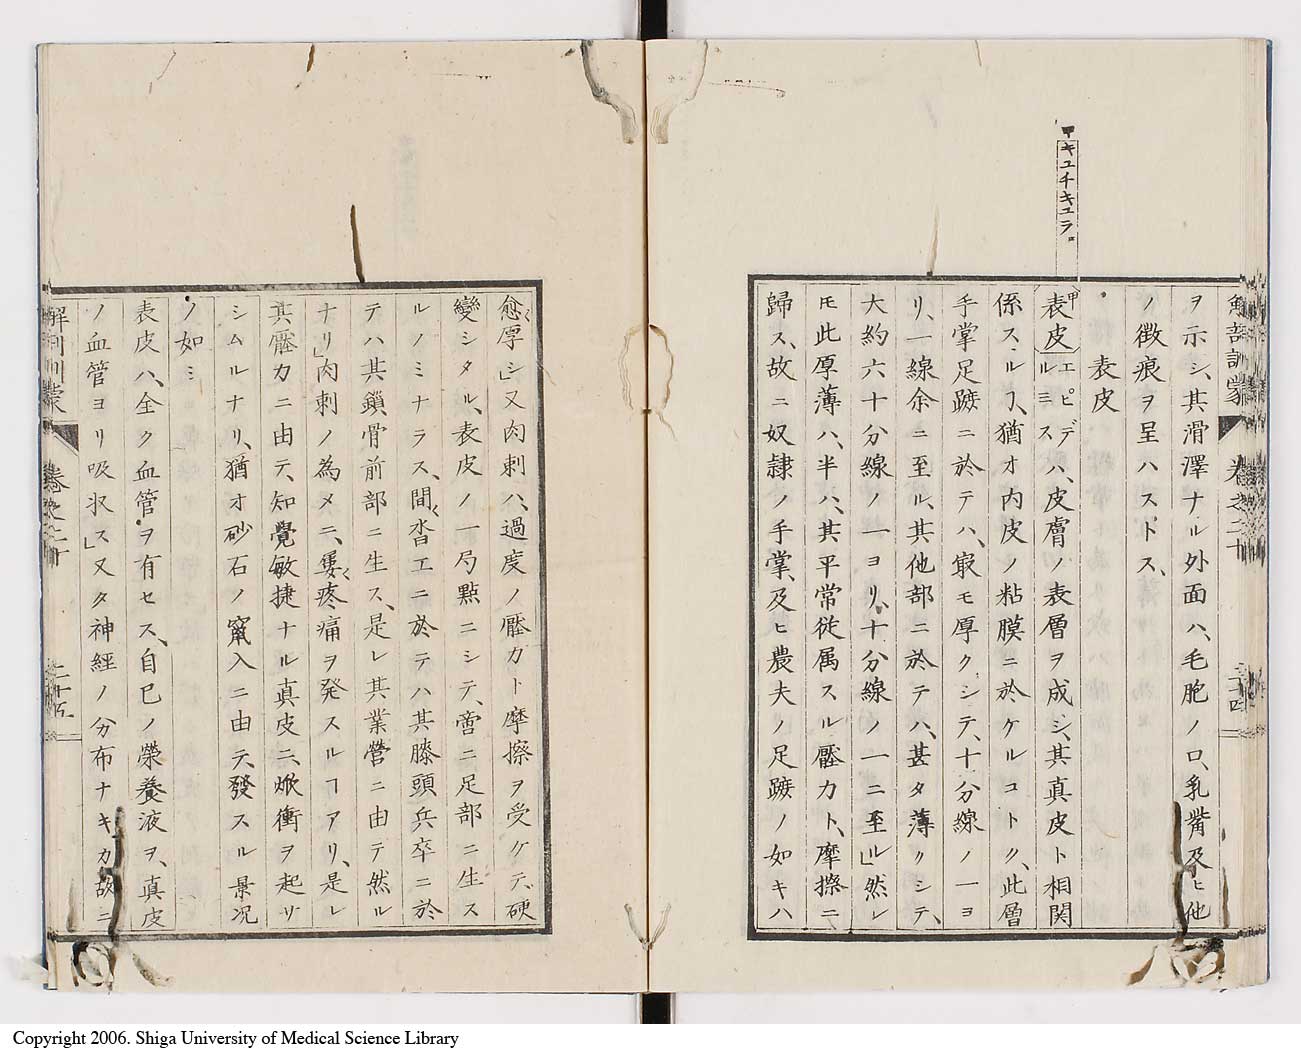 キュチキュラ。
解剖訓蒙
卷之二十
二十四
ヲ示シ、其滑澤ナル外面ハ、毛胞ノ口、乳嘴及ヒ他
ノ徴痕ヲ呈ハストス、
表皮
甲
表皮 エピデルミス ハ、皮膚ノ表層ヲ成シ、其真皮ト相関
係スルヿ、猶オ内皮ノ粘膜ニ於ケルコトク、此層
手掌足蹠ニ於テハ、最モ厚クシテ、十分線ノ一ヨ
リ、一線余ニ至ル、其他部ニ於テハ、甚タ薄クシテ、
大約六十分線ノ一ヨリ、十分線ノ一ニ至ル」然レ
𪜈此厚薄ハ、半ハ、其平常従属スル壓力ト、摩擦ニ、
歸ス、故ニ奴隷ノ手掌、及ヒ農夫ノ足蹠ノ如キハ
愈厚シ」又肉刺ハ、過度ノ壓力ト摩擦ヲ受ケテ、硬
變シタル、表皮ノ一局點ニシテ、啻ニ足部ニ生ス
ルノミナラス、間沓工ニ於テハ其膝頭兵卒ニ於
テハ其鎖骨前部ニ生ス、是レ其業營ニ由テ然ル
ナリ」肉刺ノ為メニ、屡疼痛ヲ発スルヿアリ、是レ
其壓力ニ由テ、知覺敏捷ナル真皮ニ、焮衝ヲ起サ
シムルナリ、猶オ砂石ノ竄入ニ由テ、發スル景況
ノ如ミ
表皮ハ、全ク血管ヲ有セス、自己ノ榮養液ヲ、真皮
ノ血管ヨリ吸収ス」又タ神経ノ分布ナキカ故ニ
解剖訓蒙
卷之二十
二十五
Copyright 2006. Shiga University of Medical Science Library